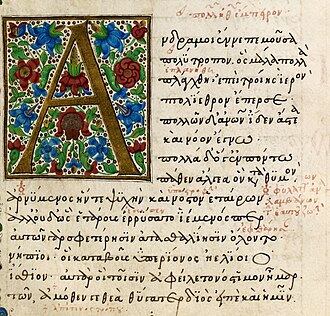 Ἄνδρα μοι ἔννεπε μοῦσα
πολύτροπον. ὃς μάλα πολλὰ
πλάγχθη. ἐπεὶ τροίης ἱερὸν
πτολίεθρον ἔπερσε
πολλῶν δ' ἀνθρώπων ἴδεν ἄστεα
καὶ νόον ἔγνω
πολλὰ δ' ὅγ' ἐν πόντω
πάθεν ἄλγεα ὃν κατὰ θυμόν
ἀρνύμενος ἥν τε ψυχὴν καὶ νόστον ἑταίρων
ἀλλ' οὐδ' ὣς ἑτάρους ἐρρύσατο ἱέμενός περ
αὐτῶν γὰρ σφετέρησιν ἀτασθαλίησιν ὄλοντο
νήπιοι. οἳ κατὰ βοῦς ὑπερίονος ἠελίοιο
ἤσθιον. αὐτὰρ ὁ τοῖσιν ἀφείλετο νόστιμον ἦμαρ
τῶν ἁμόθεν γε θεὰ θύγατερ διὸς εἰπὲ καὶ ἡμῖν